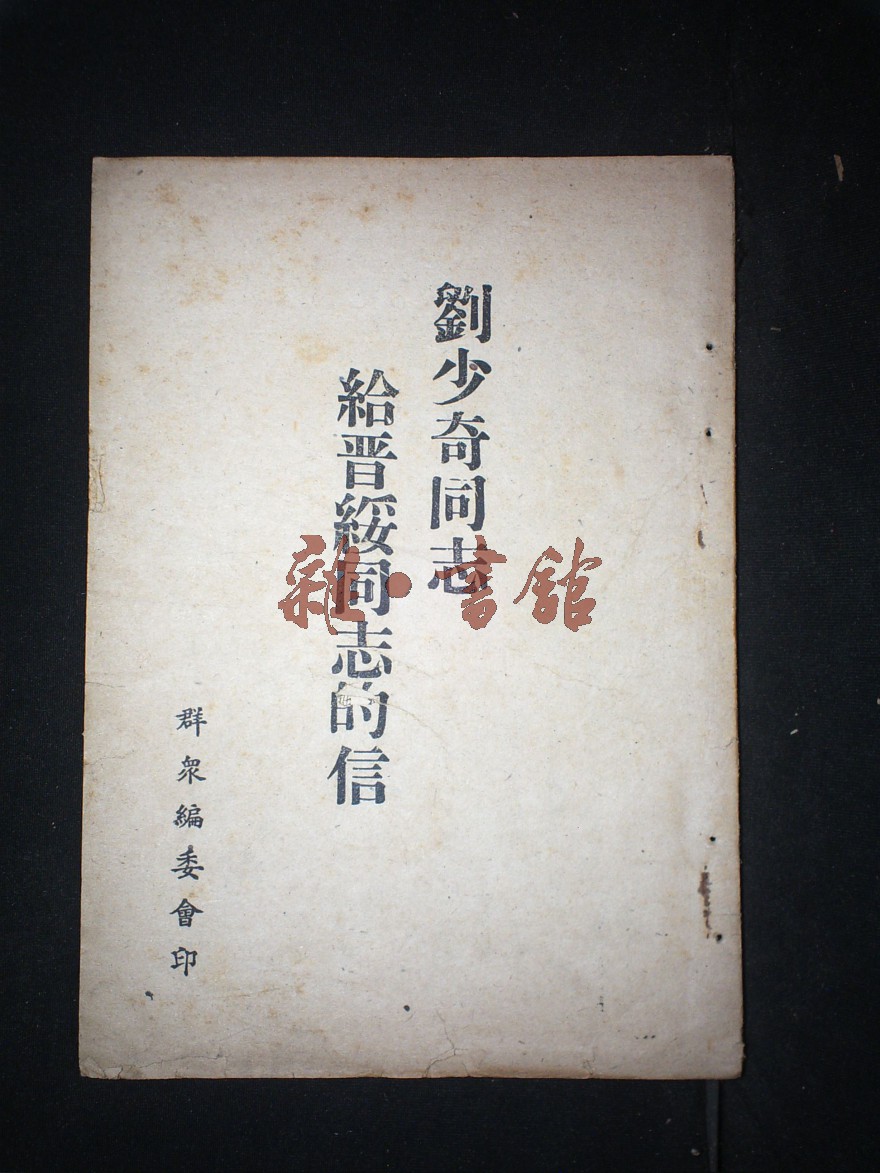 劉少奇同志
給晋綏同志的信
群眾編委會印
雜·書館